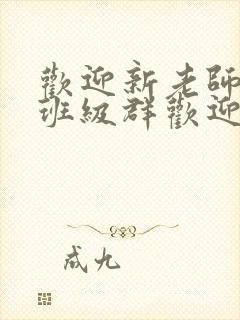 歡迎新老師
班級群歡迎
成九